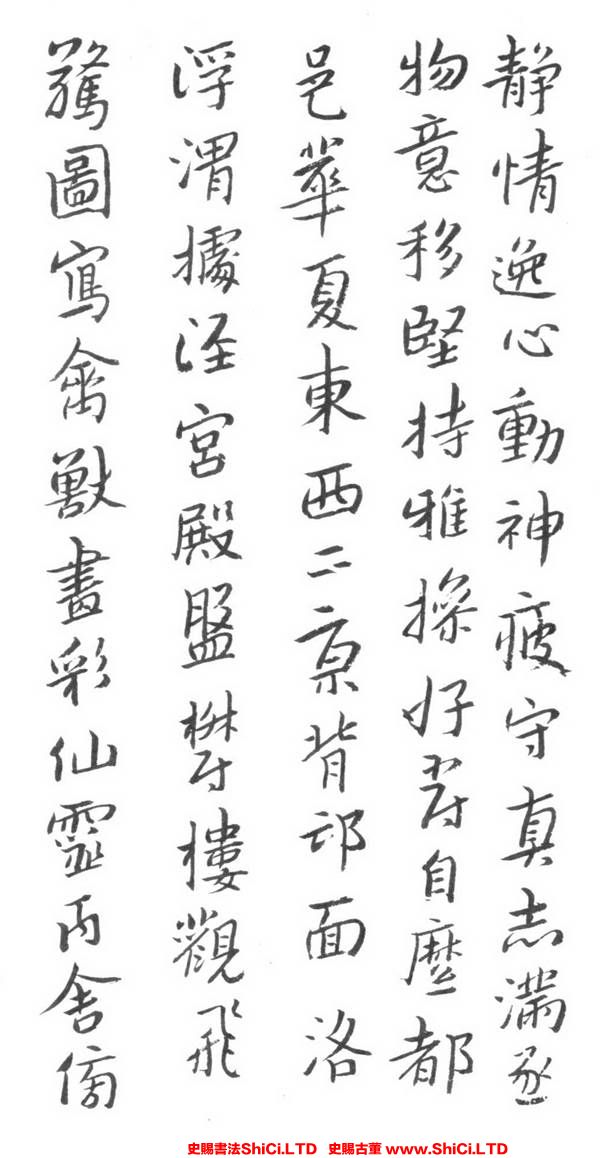 静情逸心動神疲守真志滿逐
物意移堅持雅操好爵自縻都
邑華夏東西二京背邙面洛
浮渭據涇宮殿盤鬱樓觀飛
驚圖寫禽獸畫彩仙靈丙舍傍
史賜書法ShiCi.LTD 史賜古董 www.ShiCi.LTD